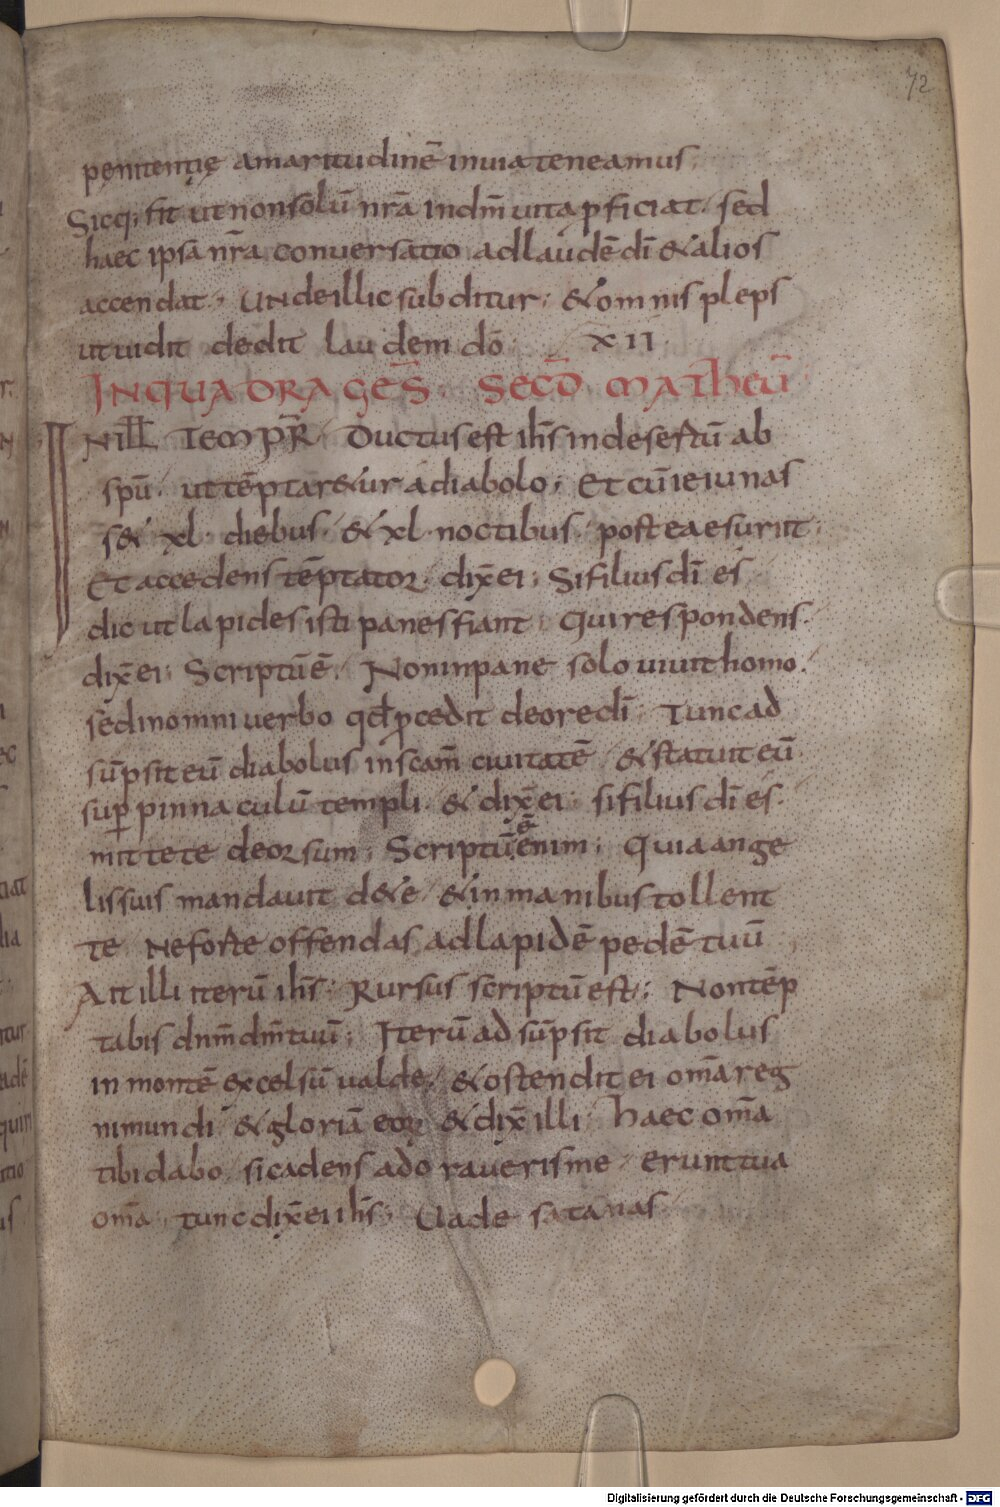 72
pęnitentię amaritudinē inuia teneamus.
Sicq; fit ut nonsolū nr̄a indm̄ uita pficiat. sed
haec ipsa nr̄a conversatio adlaudē dī & alios
accendat. UNdeillic subditur; & omnis pleps
ut uidit dedit laudem dō. XII.
INQUADRAGES̄. SECD̄ MATHEŪ
INILL̄ TEMPR̄. Ductus est ih̄s indesertū ab
spū. ut tēptar&ur adiabolo; Et cū ieiunas
s& xl. diebus. & xl. noctibus. postea esuriit.
Et accedens tēptator. dix̄ ei; Si filius dī es
dic ut lapides isti panes fiant. Qui respondens.
dix̄ ei; Scriptū ē. Non inpane solo uiuit homo.
sed inomni uerbo qd̄ pcedit deore dī. Tunc ad
sūpsit eū diabolus in scam̄ ciuitatē. & statuit eū
sup pinnaculū templi. & dix̄ ei; si filius dī es.
mitte te deorsum; Scriptū ē enim; Quia ange
lis suis mandauit de te. & in manibus tollent
te. Neforte offendas adlapidē pedē tuū
Ait illi iterū ih̄s; Rursus scriptū est; Non tēp
tabis dnm̄ dm̄ tuū; Iterū ad sūpsit diabolus
in montē excelsū ualde. & ostendit ei om̄a reg
ni mundi & gloriā eoꝝ & dix̄ illi; haec om̄a
tibi dabo. si cadens adoraueris me. erunt tua
om̄a. tunc dix̄ ei ih̄s; Uade satanas
Digitalisierung gefördert durch die Deutsche Forschungsgemeinschaft - DFG